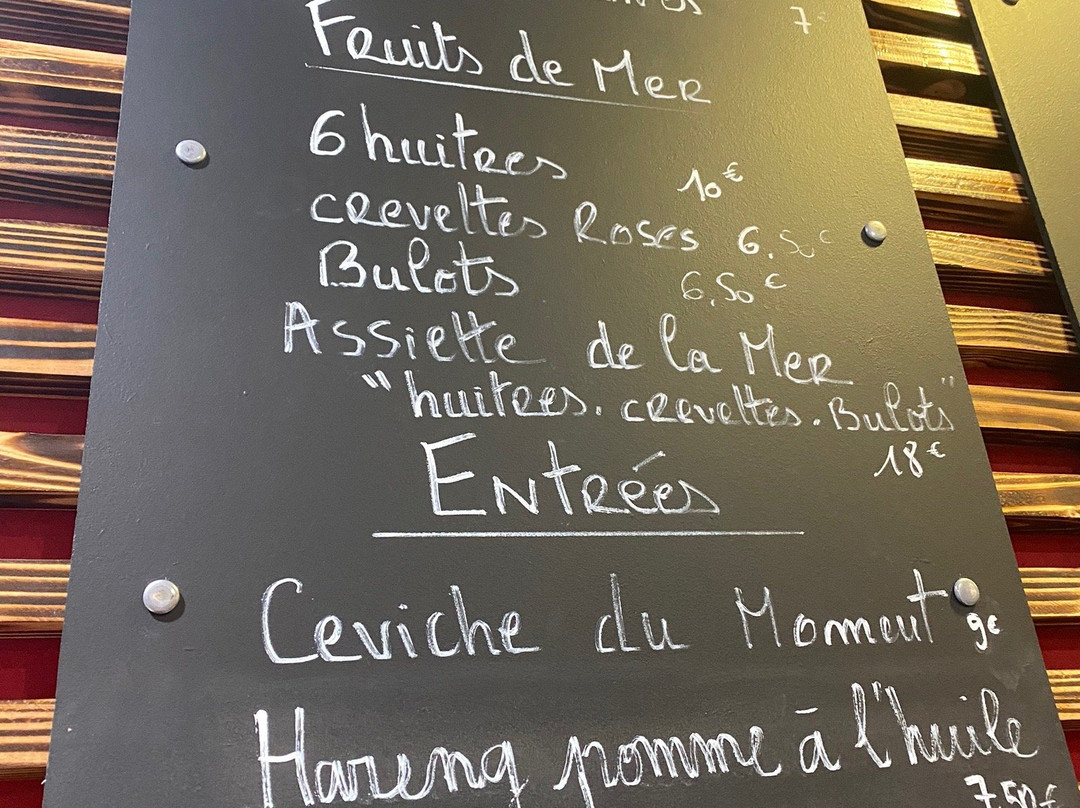 7€
Fruits de Mer
6 huitres 10€
crevettes Roses 6.50€
Bulots 6,50€
Assiette de la Mer
"huitres. crevettes. Bulots"
18€
Entrées
Ceviche du Moment 9€
Hareng pomme à l'huile
7,50€